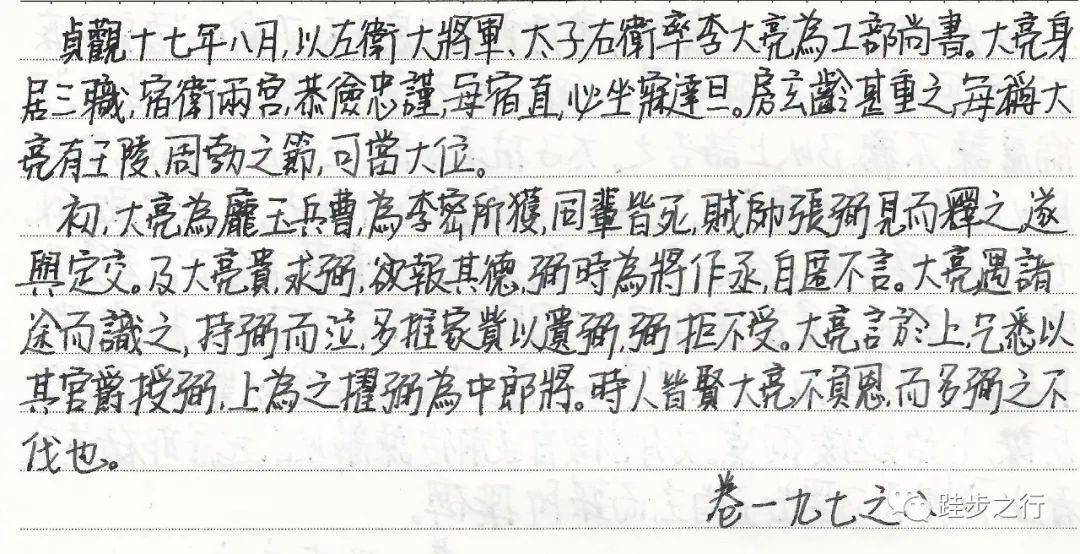 貞觀十七年八月,以左衛大將軍、太子右衛率李大亮為工部尚書。大亮身
居三職,宿衛兩宮,恭儉忠謹,每宿直,必坐寐達旦。房玄齡甚重之,每稱大
亮有王陵、周勃之節,可當大位。
初,大亮為龐玉兵曹,為李密所獲,同輩皆死,賊帥張弼見而釋之,遂
與定交。及大亮貴,求弼,欲報其德,弼時為將作丞,自匿不言。大亮遇諸
途而識之,持弼而泣,多推家貲以遺弼,弼拒不受。大亮言於上,乞悉以
其官爵授弼,上為之擢弼為中郎將。時人皆賢大亮不負恩,而多弼之不
伐也。
卷一九七之八
跬步之行